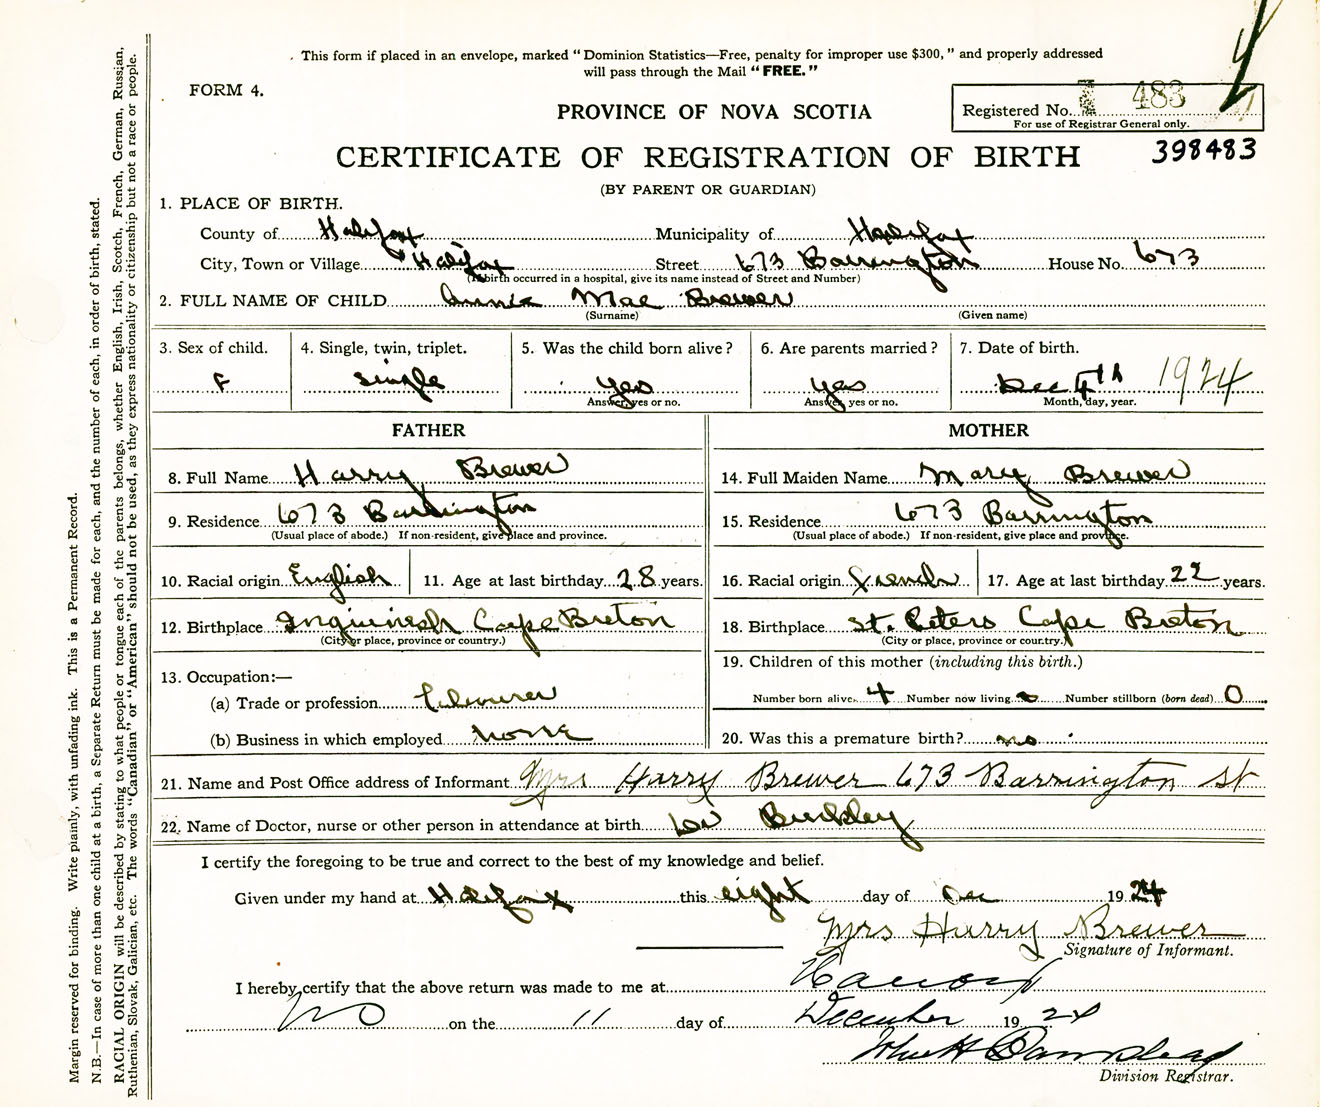 This form if placed in an envelope, marked "Dominion Statistics—Free, penalty for improper use $300," and properly addressed
will pass through the Mail "FREE."
FORM 4.
PROVINCE OF NOVA SCOTIA
Registered No. 483
For use of Registrar General only.
CERTIFICATE OF REGISTRATION OF BIRTH
398483
(BY PARENT OR GUARDIAN)
1. PLACE OF BIRTH.
County of Halifax Municipality of Halifax
City, Town or Village Halifax Street 673 Barrington House No. 673
(If birth occurred in a hospital, give its name instead of Street and Number)
2. FULL NAME OF CHILD Annie Mae Brewer
(Surname) (Given name)
3. Sex of child. 4. Single, twin, triplet. 5. Was the child born alive? 6. Are parents married? 7. Date of birth.
F single yes yes Dec 4th 1924
Answer, yes or no. Answer, yes or no. Month, day, year.
FATHER MOTHER
8. Full Name Harry Brewer
9. Residence 673 Barrington
(Usual place of abode.) If non-resident, give place and province.
10. Racial origin English 11. Age at last birthday 28 years.
12. Birthplace Cape Breton
(City or place, province or country.)
13. Occupation:—
(a) Trade or profession Labourer
(b) Business in which employed none
14. Full Maiden Name Mary Brewer
15. Residence 673 Barrington
(Usual place of abode.) If non-resident, give place and province.
16. Racial origin French 17. Age at last birthday 22 years.
18. Birthplace St. Peters Cape Breton
(City or place, province or country.)
19. Children of this mother (including this birth.)
Number born alive 4 Number now living Number stillborn (born dead) 0
20. Was this a premature birth? no
21. Name and Post Office address of Informant Mrs Harry Brewer 673 Barrington St
22. Name of Doctor, nurse or other person in attendance at birth
I certify the foregoing to be true and correct to the best of my knowledge and belief.
Given under my hand at Halifax this eight day of Dec 1924
Mrs Harry Brewer
Signature of Informant.
I hereby certify that the above return was made to me at
on the 11 day of December 1924
Division Registrar.
Margin reserved for binding. Write plainly, with unfading ink. This is a Permanent Record.
N.B.—In case of more than one child at a birth, a Separate Return must be made for each, and the number of each, in order of birth, stated.
RACIAL ORIGIN will be described by stating to what people or tongue each of the parents belongs, whether English, Irish, Scotch, French, German, Russian,
Ruthenian, Slovak, Galician, etc. The words "Canadian" or "American" should not be used, as they express nationality or citizenship but not a race or people.